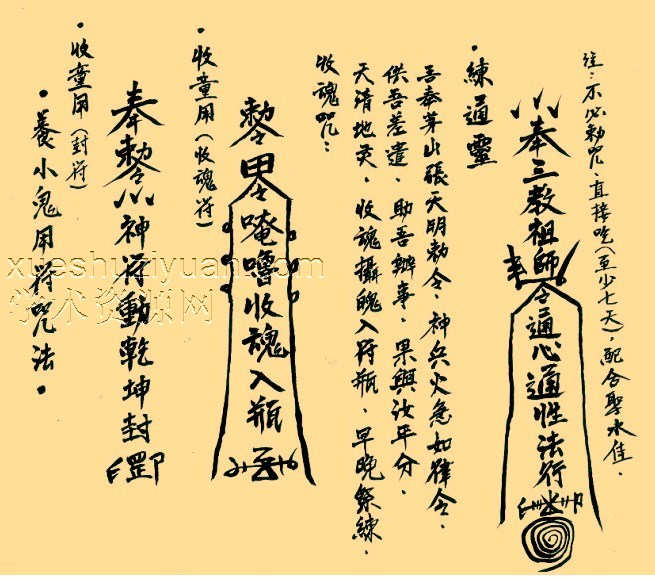 註：不必勅咒，直接吃（至少七天），配合聖水佳。
奉三教祖師令通心通性法行
・練通靈
吾奉茅山張天明勅令，神兵火急如律令，
供吾差遣，助吾辦事，果與汝年分，
天清地灵，收魂攝魄入符瓶，早晚祭練，
收魂咒：
唵嚕收魂入瓶
・收童用（收魂符）
奉勅令神符動乾坤封
・收童用（封符）
・養小鬼用符咒法・
xueshuziyuan.com
学术资源网